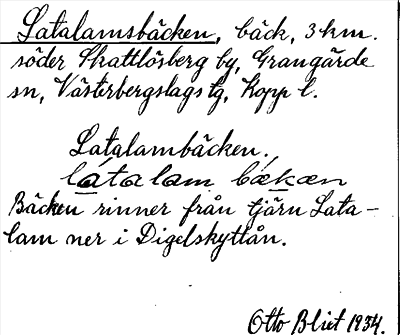 Latalamsbäcken, bäck, 3 km.
söder Skattlösberg by, Grangärde
sn, Västerbergslags tg, Kopp l.
Latalambäcken.
látalam bækæn
Bäcken rinner från tjärn Lata-
lam ner i Digelskyttån.
Otto Blixt 1934.